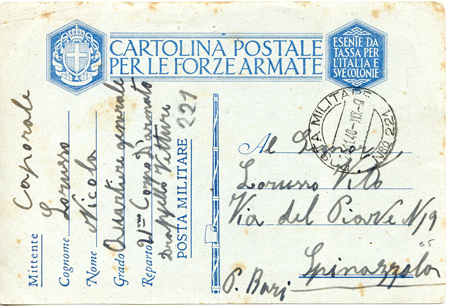 CARTOLINA POSTALE
PER LE FORZE ARMATE
ESENTE DA
TASSA PER
L'ITALIA E
SVE COLONIE
POSTA MILITARE
No 221
Mittente Caporale
Cognome Lorusso
Nome Nicola
Grado Quartiere generale
Reparto 21mo Corpo D'armata
Drappello Vetture
POSTA MILITARE 221
Al Signor
Lorusso Vito
Via del Piave N 9
Spinazzola
P. Bari